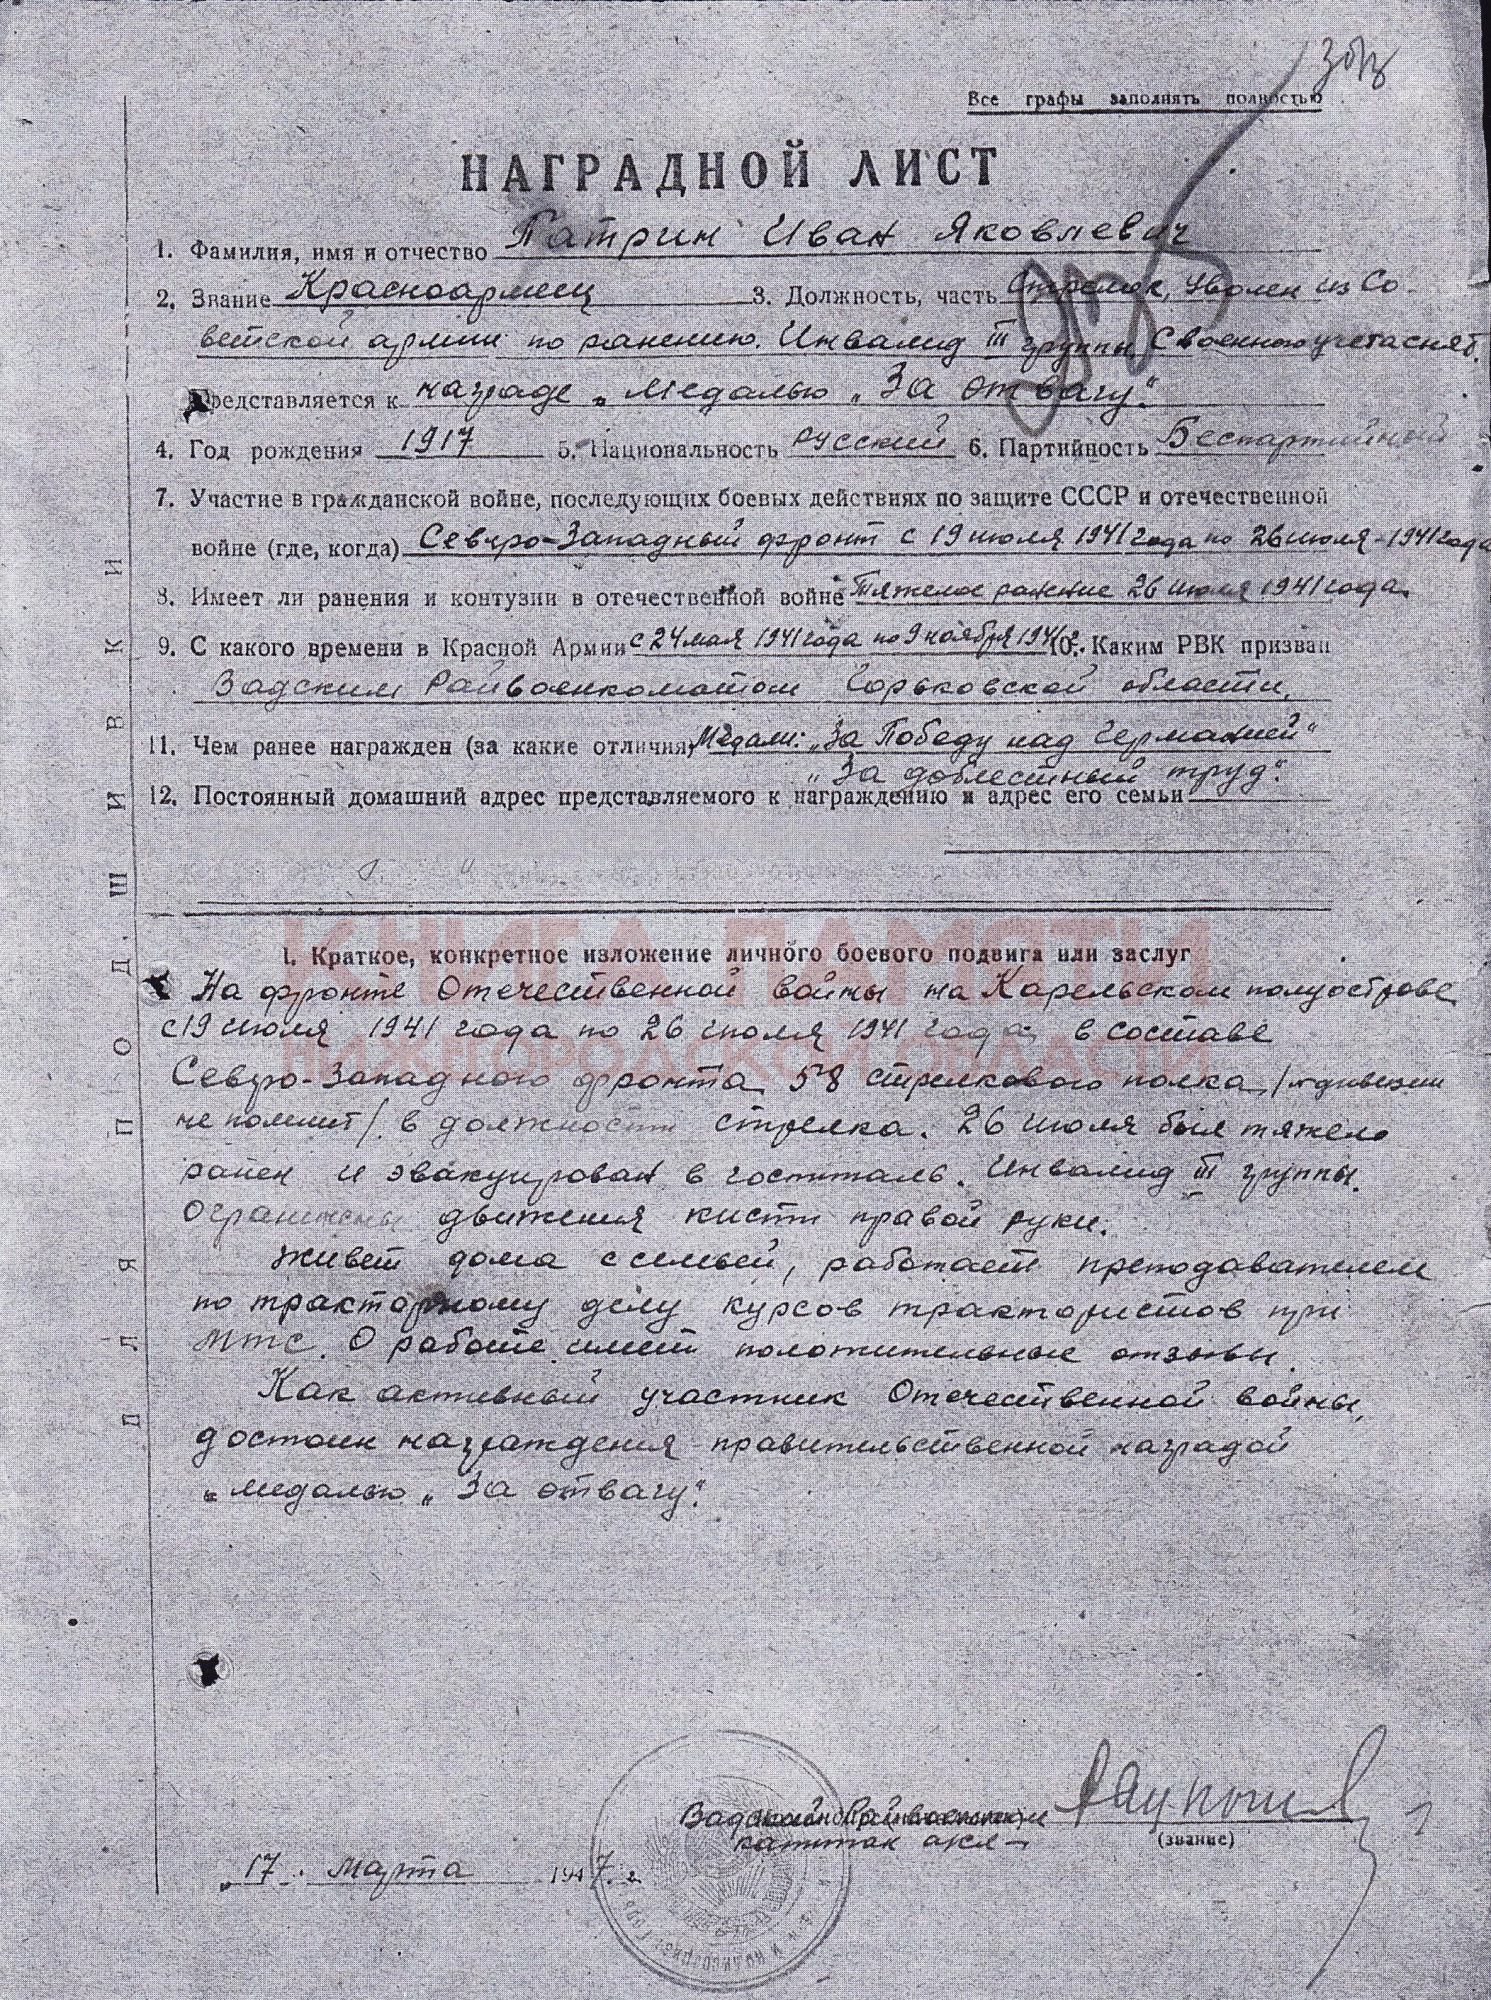 Все графы заполнять полностью
НАГРАДНОЙ ЛИСТ
1. Фамилия, имя и отчество Патрин Иван Яковлевич
2. Звание Красноармеец 3. Должность, часть Стрелок, Уволен из Со-
ветской армии по ранению. Инвалид III группы С военного учета снят.
Представляется к награде „Медалью „За отвагу".
4. Год рождения 1917 5. Национальность русский 6. Партийность Беспартийный
7. Участие в гражданской войне, последующих боевых действиях по защите СССР и отечественной
войне (где, когда) Северо-Западный фронт с 19 июля 1941 года по 26 июля-1941 года
8. Имеет ли ранения и контузии в отечественной войне Тяжелое ранение 26 июля 1941 года.
9. С какого времени в Красной Армии с 24 мая 1941 года по 9 ноября 1941 г. 10. Каким РВК призван
Вадским Райвоенкоматом Горьковской области.
11. Чем ранее награжден (за какие отличия) Медали: „За Победу над Германией"
„За доблестный труд".
12. Постоянный домашний адрес представляемого к награждению и адрес его семьи
КНИГА ПАМЯТИ
НИЖЕГОРОДСКОЙ ОБЛАСТИ
I. Краткое, конкретное изложение личного боевого подвига или заслуг
На фронте Отечественной войны на Карельском полуострове
с 19 июля 1941 года по 26 июля 1941 года в составе
Северо-Западного фронта 58 стрелкового полка /дивизии
не помнит/ в должности стрелка. 26 июля был тяжело
ранен и эвакуирован в госпиталь. Инвалид III группы.
Ограничены движения кисти правой руки.
Живет дома с семьей, работает преподавателем
по тракторному делу курсов трактористов при
МТС. О работе имеет положительные отзывы.
Как активный участник Отечественной войны,
достоин награждения правительственной наградой
„медалью „За отвагу".
капитан
(звание)
„17„ марта 1947 г.
ДЛЯ ПОДШИВКИ